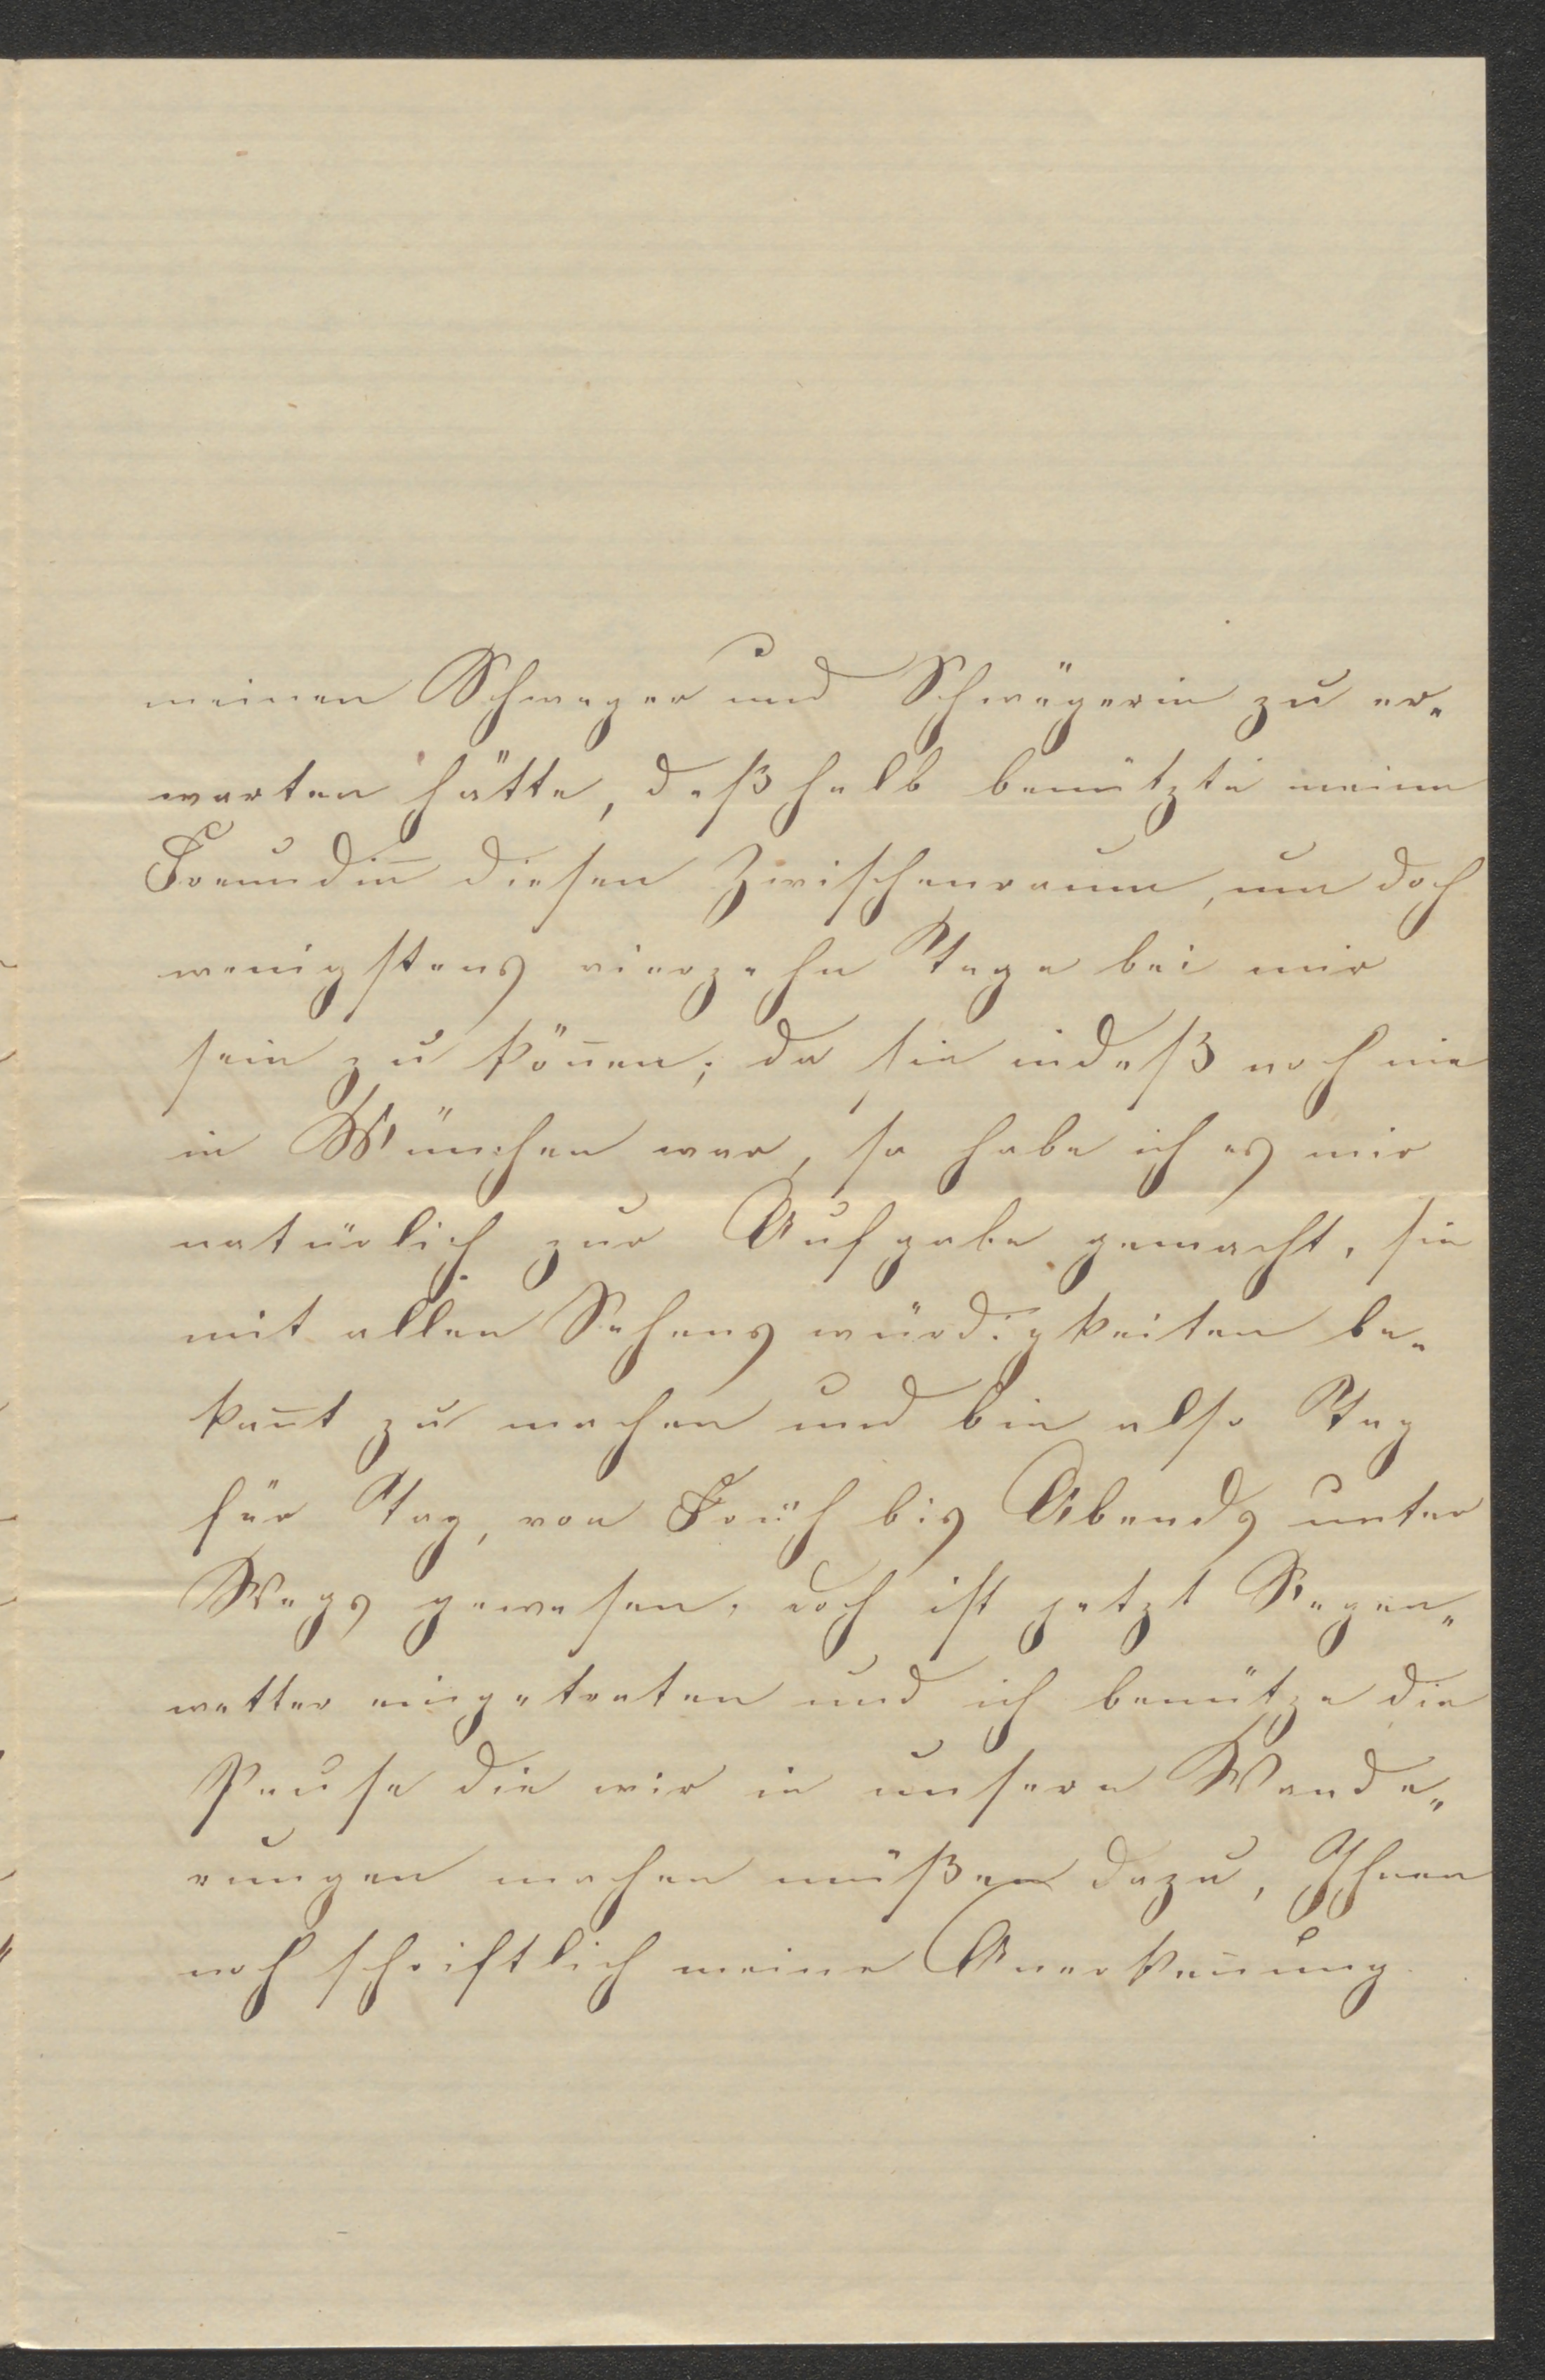 meinen Schwager und Schwägerin zu er„
warten hätte, deßhalb benützte meine
Freundin̄ diesen Zwischenraum, um doch
wenigstens vierzehn Tage bei mir
sein zu kön̄en; da sie indeß noch nie
in München war, so habe ich es mir
natürlich zur Aufgabe gemacht, sie
mit allen Sehenswürdigkeiten be„
kan̄t zu machen und bin also Tag
für Tag, von Früh bis Abends unter
Wegs gewesen, doch ist jetzt Regen„
wetter eingetreten und ich benütze die
Pause die wir in unsern Wande„
rungen machen müßen dazu, Ihnen
noch schriftlich meine Anerken̄ung